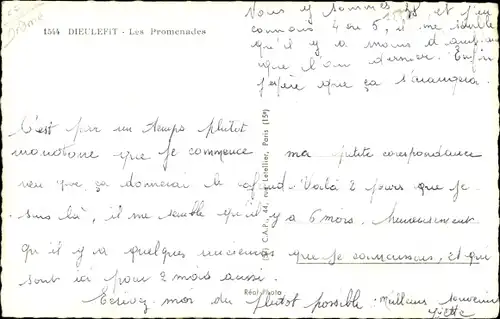 Drôme
1544 DIEULEFIT - Les Promenades
Nous y sommes 48 et j'en
connais 4 ou 5, il me semble
qu'il y a moins d'ambiance
que l'an dernier. Enfin
j'espère que ça s'arrangera
C'est par un temps plutôt
monotone que je commence ma petite corespondance
peu que, ça donnerai le cafard. Voilà 2 jours que je
suis là, il me semble qu'il y a 6 mois. Heureusement
qu'il y a quelques anciennes que je connaissais, et qui
sont ici pour 2 mois aussi.
Ecrivez-moi du plutôt possible. Meilleurs souvenirs
Yvette
C.A.P., 44, rue Letellier, Paris (15e)
Réel Photo